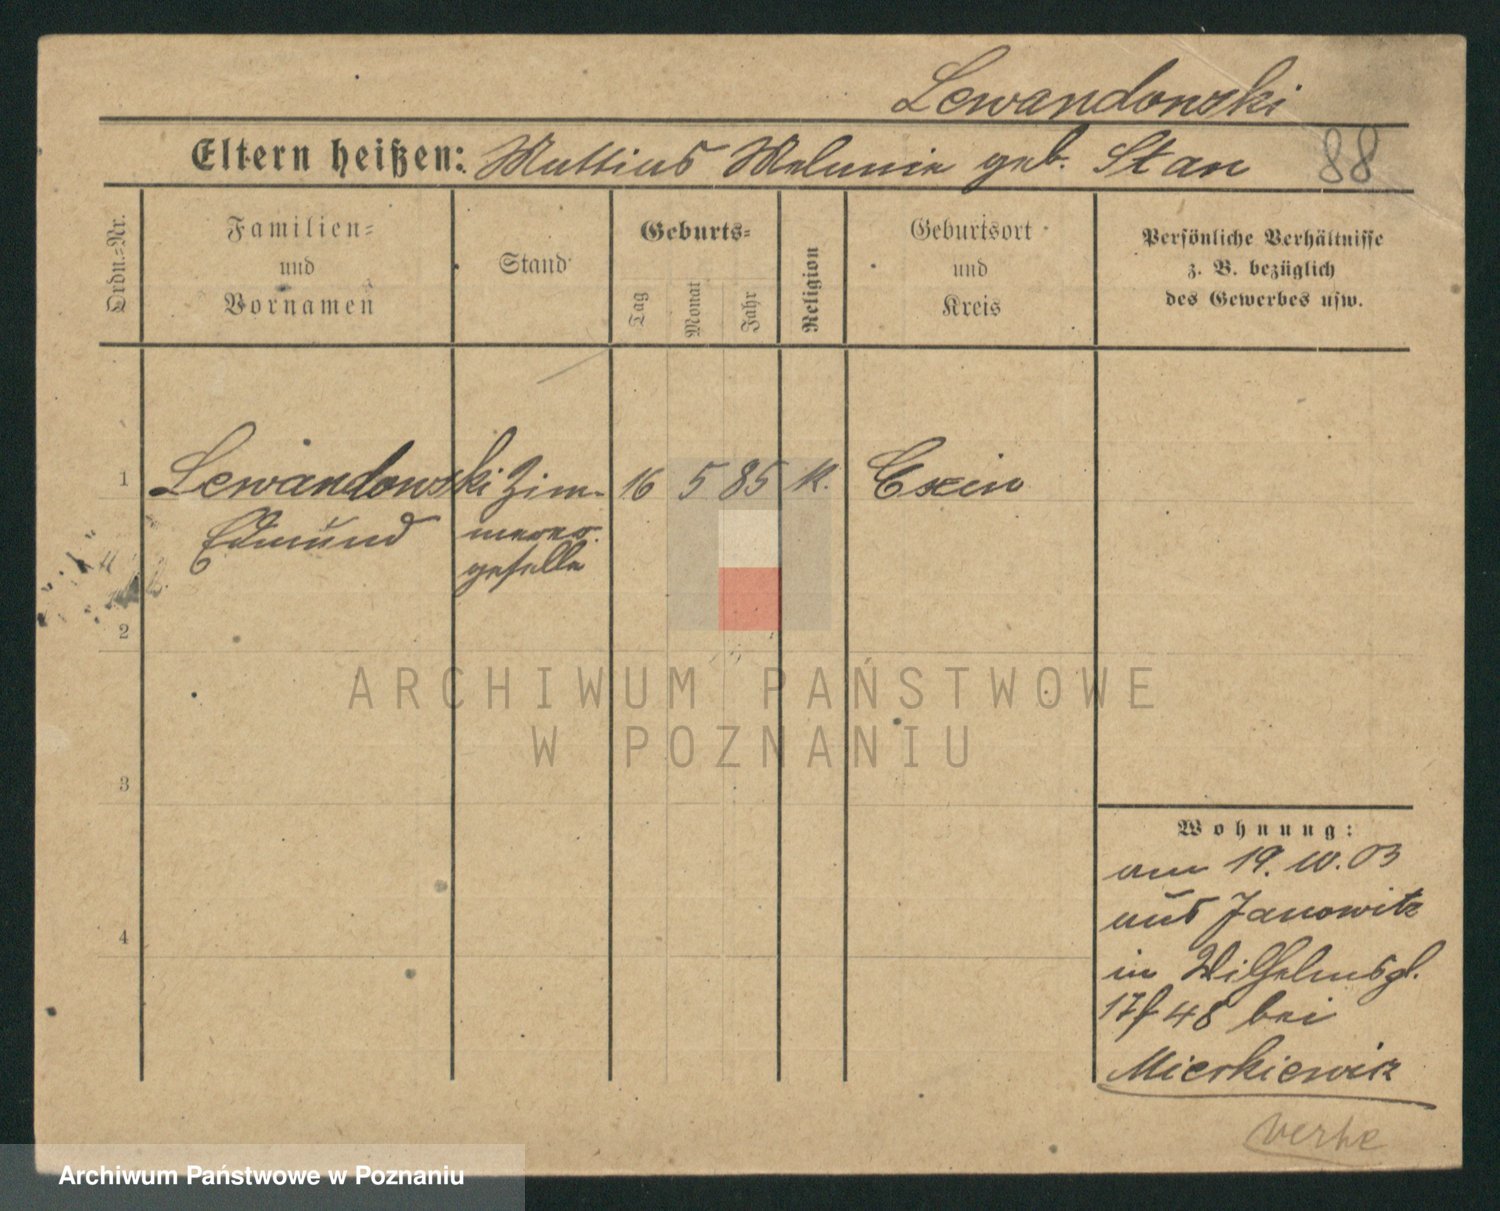 Lewandowski
Eltern heißen: Mattias Melanie geb. Stan 88
Ordn.-Nr.
Familien-
und
Vornamen
Stand
Geburts-
Tag
Monat
Jahr
Religion
Geburtsort
und
Kreis
Persönliche Verhältnisse
z. B. bezüglich
des Gewerbes usw.
1 Lewandowski Zim- 16 5 85 K. Exin
Edmund merer-
geselle
2
3
4
Wohnung:
am 19. 10. 03
aus Janowitz
in Wilhelmspl.
48 bei
Mierkiewicz
ARCHIWUM PAŃSTWOWE
W POZNANIU
Archiwum Państwowe w Poznaniu